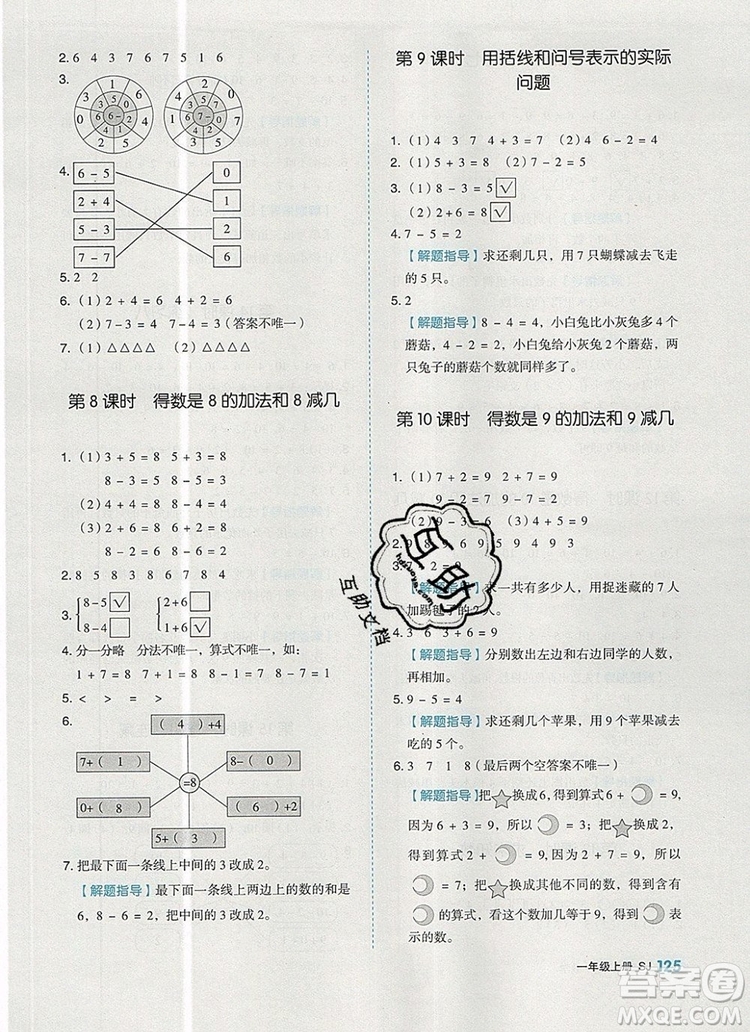 2. 6 4 3 6 7 6 7 5 1 6
3.
6-
7-
4. 6-5 0
2+4 1
5-3 6
7-7 2
5. 2 2
6. (1) 2 + 4 = 6 4 + 2 = 6
(2) 7 - 3 = 4 7 - 4 = 3 (答案不唯一)
7. (1) △△△△ (2) △△△△
第 8 课时 得数是 8 的加法和 8 减几
1. (1) 3 + 5 = 8 5 + 3 = 8
8 - 3 = 5 8 - 5 = 3
(2) 4 + 4 = 8 8 - 4 = 4
(3) 2 + 6 = 8 6 + 2 = 8
8 - 2 = 6 8 - 6 = 2
2. 8 5 8 3 8 8 6 7 8 4
3. 8-5 ☑ 2+6 □
8-4 □ 1+6 ☑
4. 分一分略 分法不唯一，算式不唯一，如:
1 + 7 = 8 7 + 1 = 8 8 - 1 = 7 8 - 7 = 1
5. < > = >
6. ( 4 )+4
7+( 1 ) 8-( 0 )
=8
0+( 8 ) ( 6 )+2
5+( 3 )
7. 把最下面一条线上中间的 3 改成 2。
【解题指导】最下面一条线上两边上的数的和是
6, 8 - 6 = 2, 把中间的 3 改成 2。
第 9 课时 用括线和问号表示的实际
问题
1. (1) 4 3 7 4 + 3 = 7 (2) 6 - 2 = 4
2. (1) 5 + 3 = 8 (2) 7 - 4 = 3
3. (1) 8 - 3 = 5 ☑
(2) 2 + 6 = 8 ☑
4. 7 - 5 = 2
【解题指导】求还剩几只，用 7 只蝴蝶减去飞走
的 5 只。
5. 2
【解题指导】8 - 4 = 4, 小白兔比小灰兔多 4 个
蘑菇, 4 - 2 = 2, 小白兔给小灰兔 2 个蘑菇,
两只兔子的蘑菇个数就同样多了。
第 10 课时 得数是 9 的加法和 9 减几
1. (1) 7 + 2 = 9 2 + 7 = 9
9 - 2 = 7 9 - 7 = 2
(2) 9 - 3 = 6 9 - 6 = 3
2. 9 8 9 6 9 5 9 4 9 3
3. 7 + 2 = 9
【解题指导】求一共有多少人，用捉迷藏的 7 人
加踢毽子的 2 人。
4. 3 6 3 + 6 = 9
【解题指导】分别数出左边和右边同学的人数，
再相加。
5. 9 - 5 = 4
【解题指导】求还剩几个苹果，用 9 个苹果减去
吃的 5 个。
6. 3 7 1 8 (最后两个空答案不唯一)
【解题指导】把☆换成 6, 得到算式 6 + ☾ = 9,
因为 6 + 3 = 9, 所以 ☾ = 3; 把☆换成 2,
得到算式 2 + ☾ = 9, 因为 2 + 7 = 9, 所以
☾ = 7; 把☆换成其他不同的数，得到含有
☾ 的算式，看这个数加几等于 9, ☾ 表示
的数就是几。
互助
互助文档
一年级上册 SJ 125
答案圈
MXQE.COM